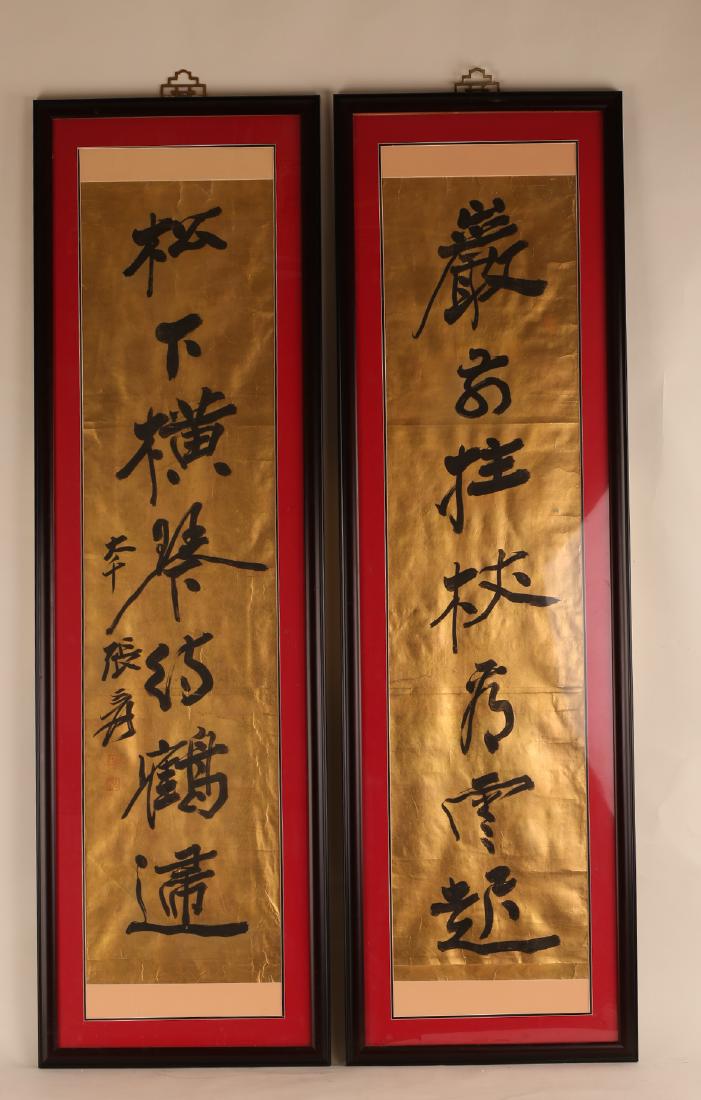 巖前拄杖看雲起
松下橫琴待鶴歸
大千張爰